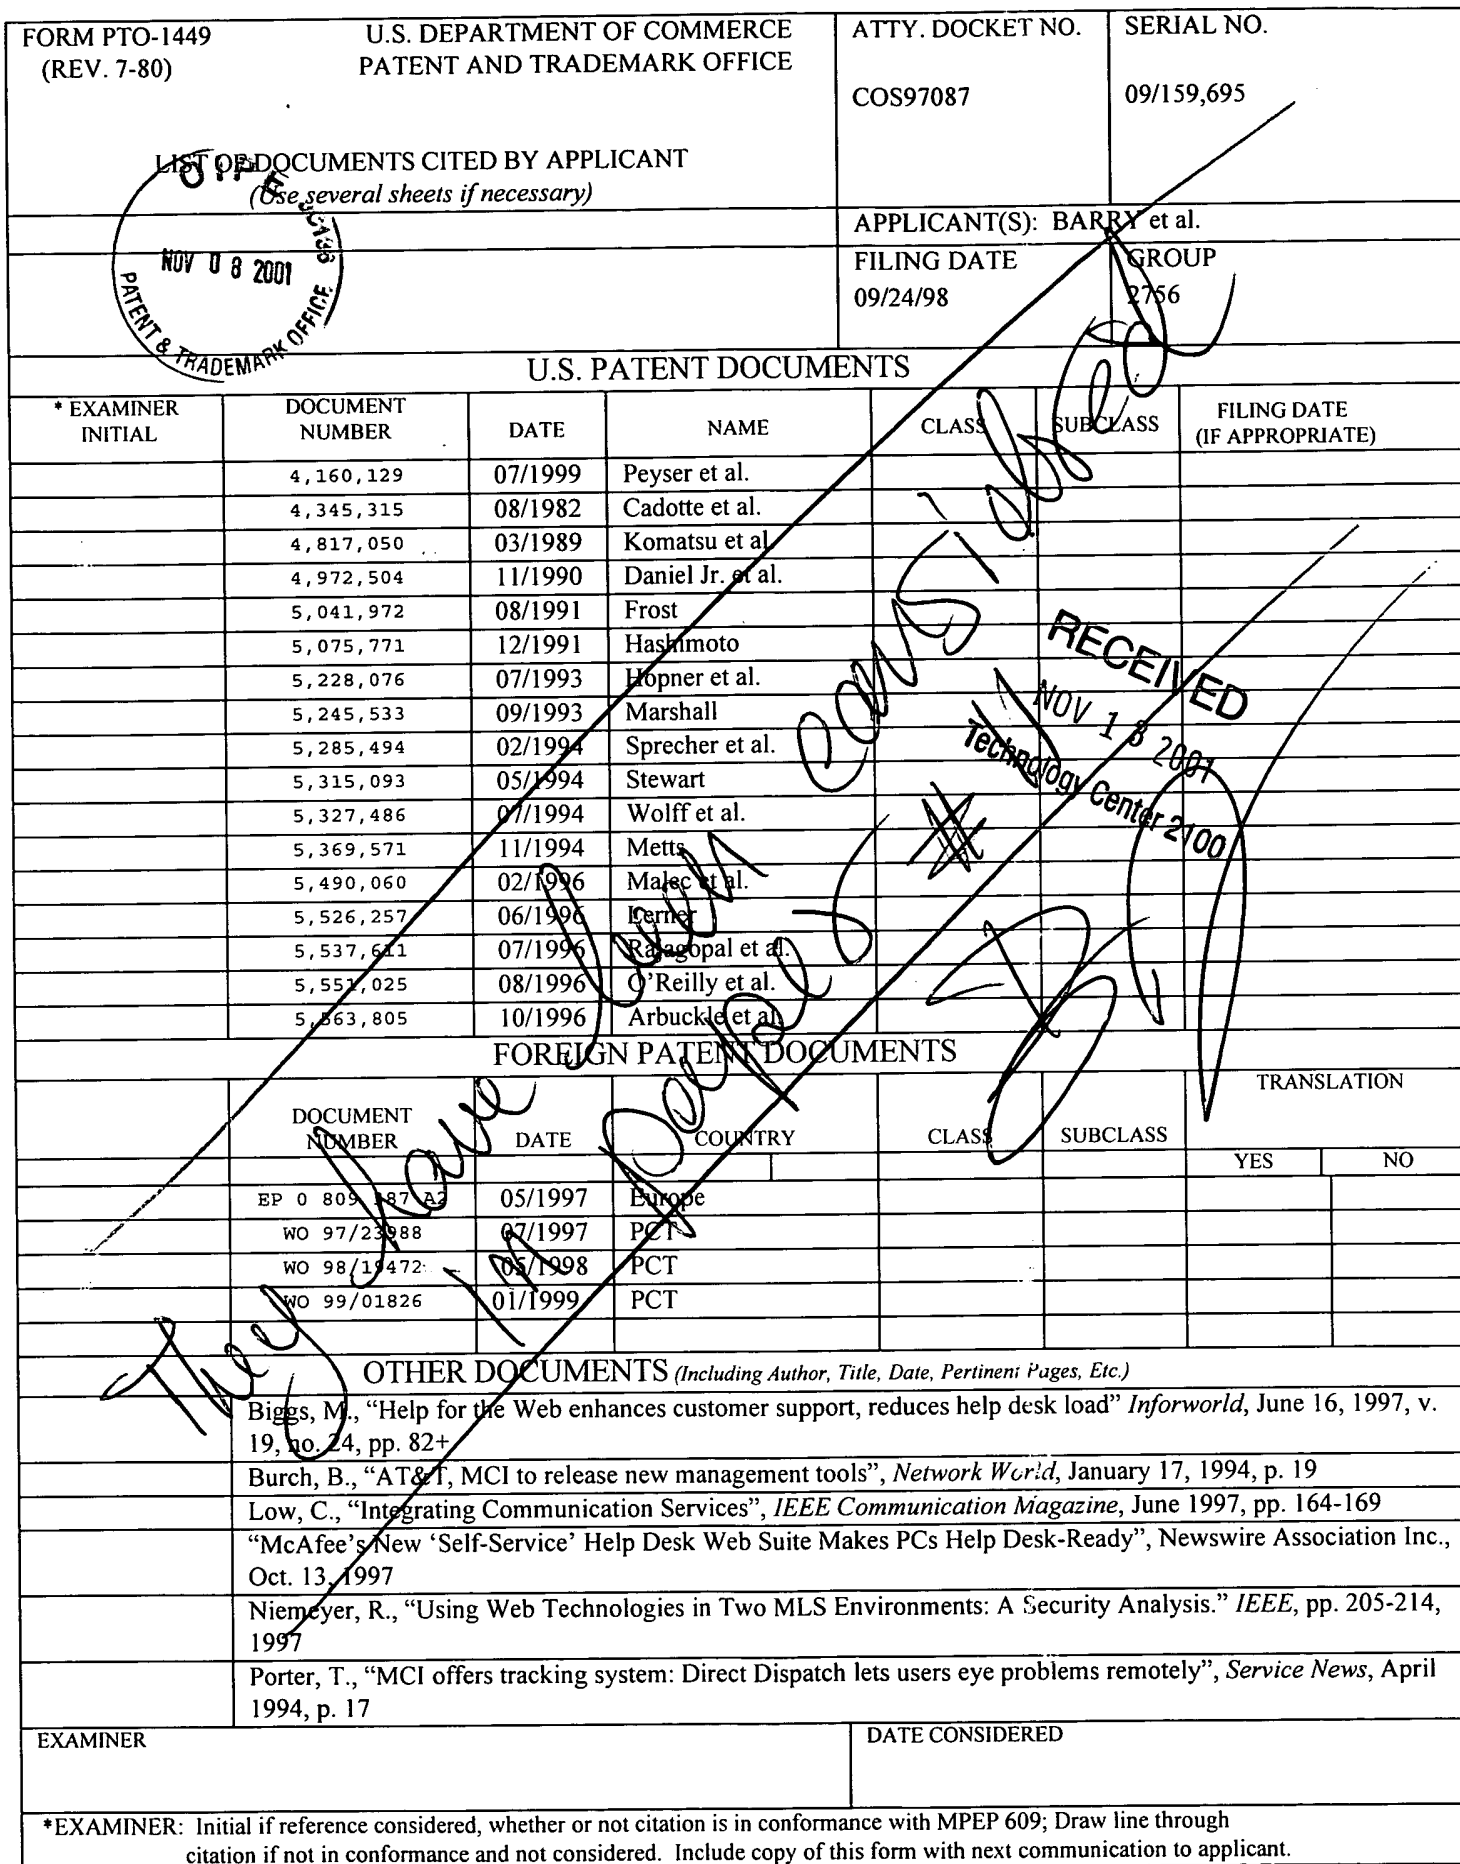 FORM PTO-1449 U.S. DEPARTMENT OF COMMERCE ATTY. DOCKET NO. SERIAL NO.
(REV. 7-80) PATENT AND TRADEMARK OFFICE
COS97087 09/159,695
LIST OF DOCUMENTS CITED BY APPLICANT
(Use several sheets if necessary)
OIPE JC136
NOV 08 2001
PATENT & TRADEMARK OFFICE
APPLICANT(S): BARRY et al.
FILING DATE GROUP
09/24/98 2756
U.S. PATENT DOCUMENTS
* EXAMINER INITIAL DOCUMENT NUMBER DATE NAME CLASS SUBCLASS FILING DATE (IF APPROPRIATE)
4,160,129 07/1999 Peyser et al.
4,345,315 08/1982 Cadotte et al.
4,817,050 03/1989 Komatsu et al
4,972,504 11/1990 Daniel Jr. et al.
5,041,972 08/1991 Frost
5,075,771 12/1991 Hashimoto
5,228,076 07/1993 Hopner et al.
5,245,533 09/1993 Marshall
5,285,494 02/1994 Sprecher et al.
5,315,093 05/1994 Stewart
5,327,486 07/1994 Wolff et al.
5,369,571 11/1994 Metts
5,490,060 02/1996 Malec et al.
5,526,257 06/1996 Lerner
5,537,611 07/1996 Rajagopal et al.
5,551,025 08/1996 O'Reilly et al.
5,563,805 10/1996 Arbuckle et al.
RECEIVED
NOV 13 2001
Technology Center 2100
They have been considered
in paper #
FOREIGN PATENT DOCUMENTS
DOCUMENT NUMBER DATE COUNTRY CLASS SUBCLASS TRANSLATION
YES NO
EP 0 809 387 A2 05/1997 Europe
WO 97/23988 07/1997 PCT
WO 98/19472 05/1998 PCT
WO 99/01826 01/1999 PCT
OTHER DOCUMENTS (Including Author, Title, Date, Pertinent Pages, Etc.)
Biggs, M., "Help for the Web enhances customer support, reduces help desk load" Inforworld, June 16, 1997, v.
19, no. 24, pp. 82+
Burch, B., "AT&T, MCI to release new management tools", Network World, January 17, 1994, p. 19
Low, C., "Integrating Communication Services", IEEE Communication Magazine, June 1997, pp. 164-169
"McAfee's New 'Self-Service' Help Desk Web Suite Makes PCs Help Desk-Ready", Newswire Association Inc.,
Oct. 13, 1997
Niemeyer, R., "Using Web Technologies in Two MLS Environments: A Security Analysis." IEEE, pp. 205-214,
1997
Porter, T., "MCI offers tracking system: Direct Dispatch lets users eye problems remotely", Service News, April
1994, p. 17
EXAMINER DATE CONSIDERED
*EXAMINER: Initial if reference considered, whether or not citation is in conformance with MPEP 609; Draw line through
citation if not in conformance and not considered. Include copy of this form with next communication to applicant.